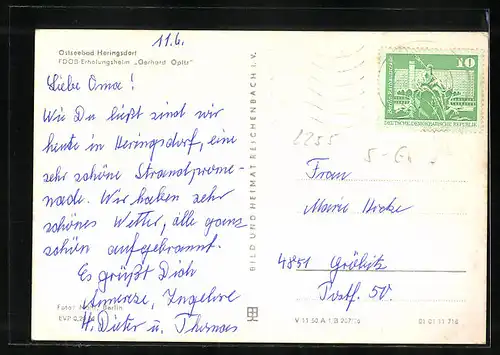 11.6.
Ostseebad Heringsdorf
FDGB-Erholungsheim „Gerhard Opitz"
Liebe Oma!
Wie Du ließt sind wir
heute in Heringsdorf, eine
sehr schöne Strandprome-
nade. Wir haben sehr
schönes Wetter, alle ganz
schön aufgebrannt.
Es grüßt Dich
Annerose, Ingelore
H. Dieter u. Thomas
Foto: Berlin
EVP 0,20
BILD UND HEIMAT REICHENBACH I. V.
V 11 50 A 1 B
01 01 11 716
10
DEUTSCHE DEMOKRATISCHE REPUBLIK
2255
Frau
Marie
4851 Gröbitz
Postf. 50